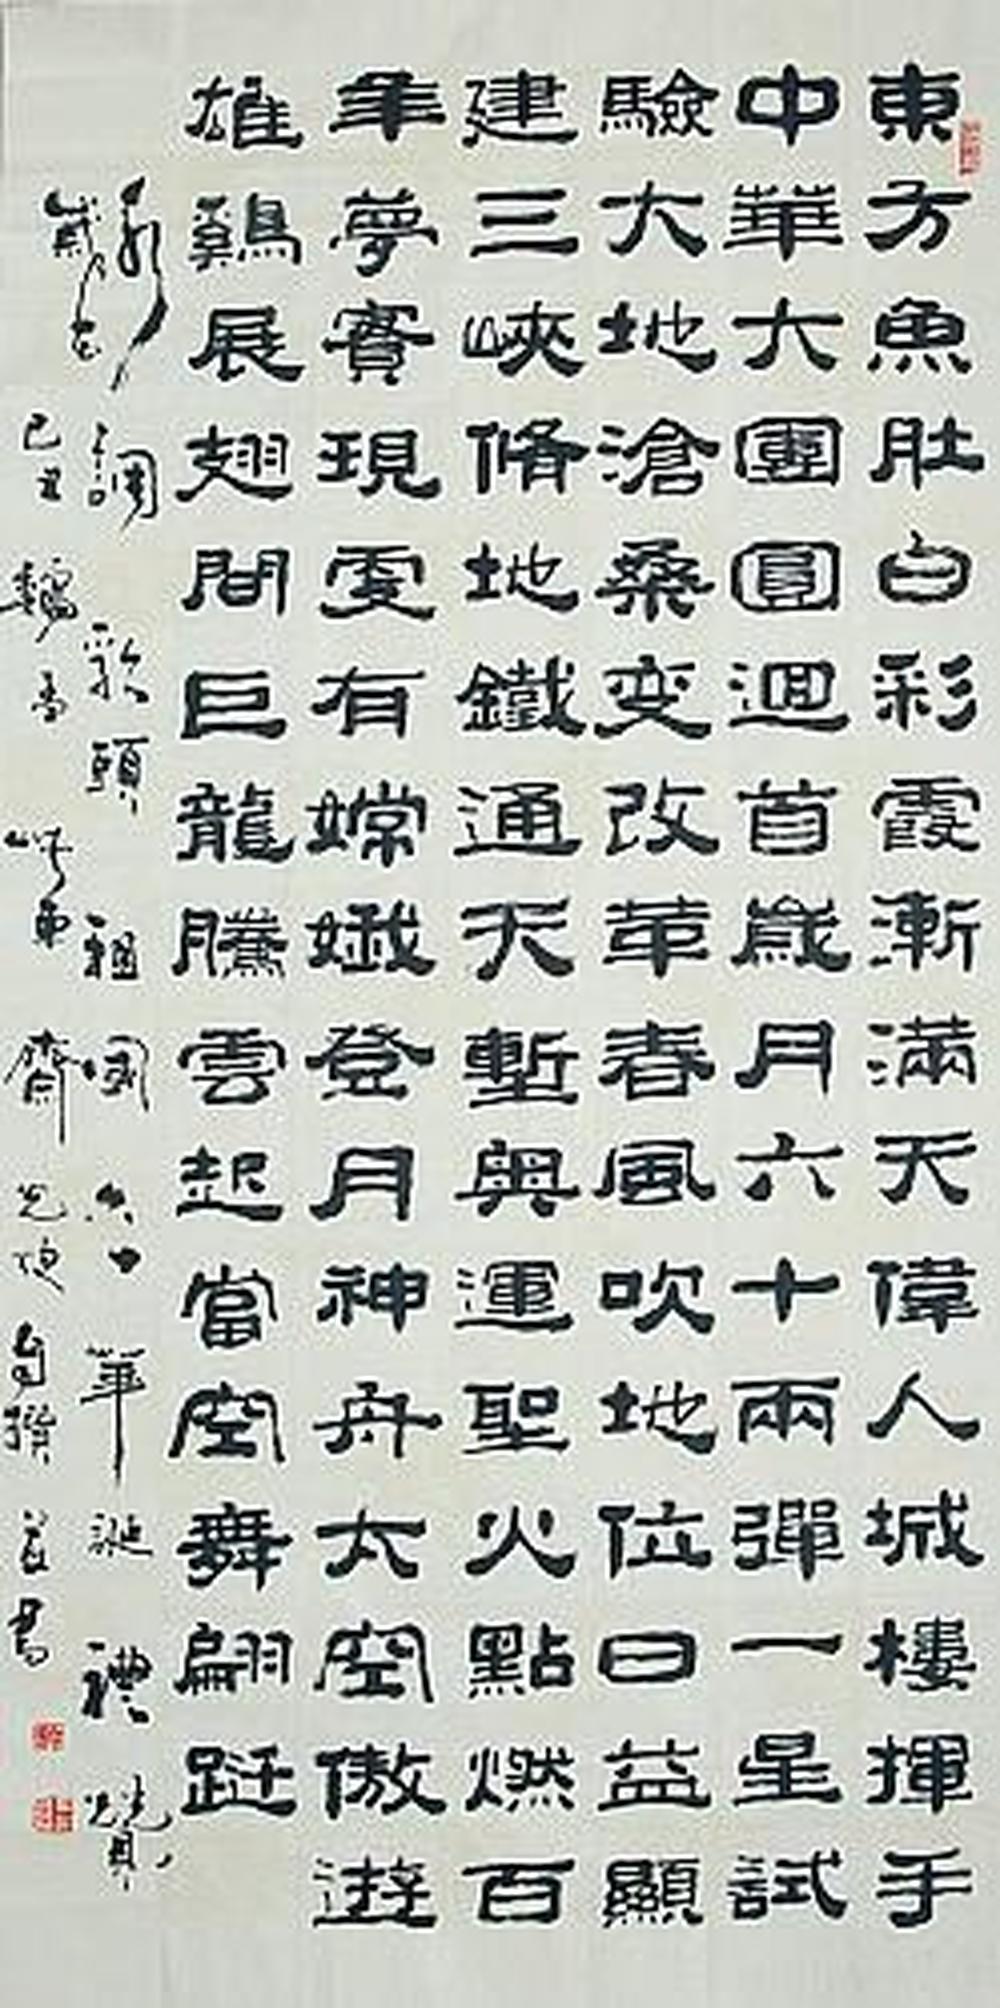 東方魚肚白彩霞漸滿天偉人城樓揮手
中華大團圓迴首歲月六十兩彈一星試
驗大地滄桑变改革春風吹地位日益顯
建三峽脩地鐵通天塹奧運聖火點燃百
年夢實現更有嫦娥登月神舟太空傲遊
雄鷄展翅間巨龍騰雲起當空舞翩跹
水調歌頭 祖國六十華誕禮贊
歲在己丑 齋 自撰并書